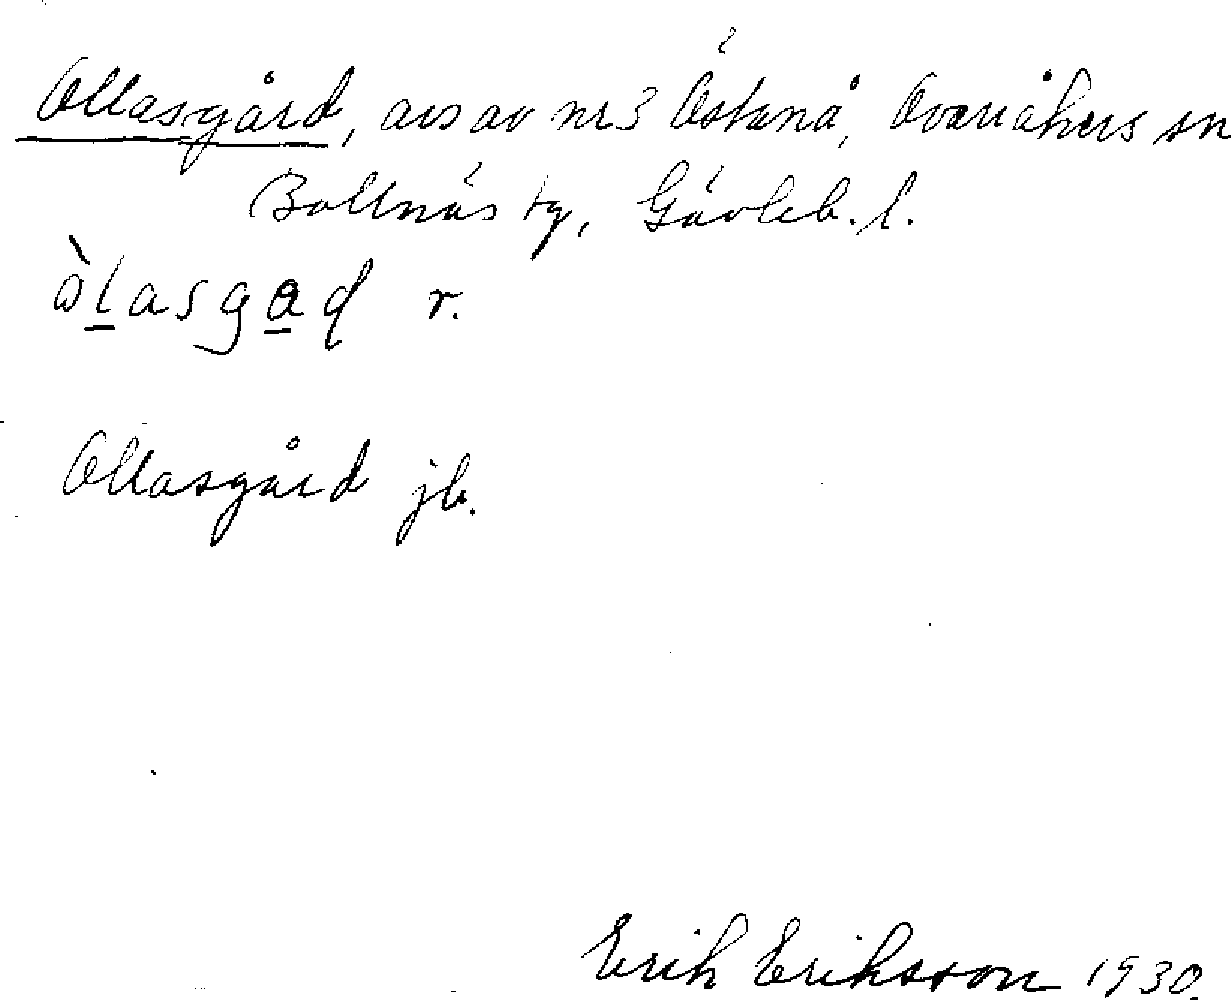 Ollasgård, avs av nr 3 Östanå, Ovanåkers sn
Bollnäs tg, Gävleb. l.
òlasgaḍ r.
Ollasgård jb.
Erik Eriksson 1930.